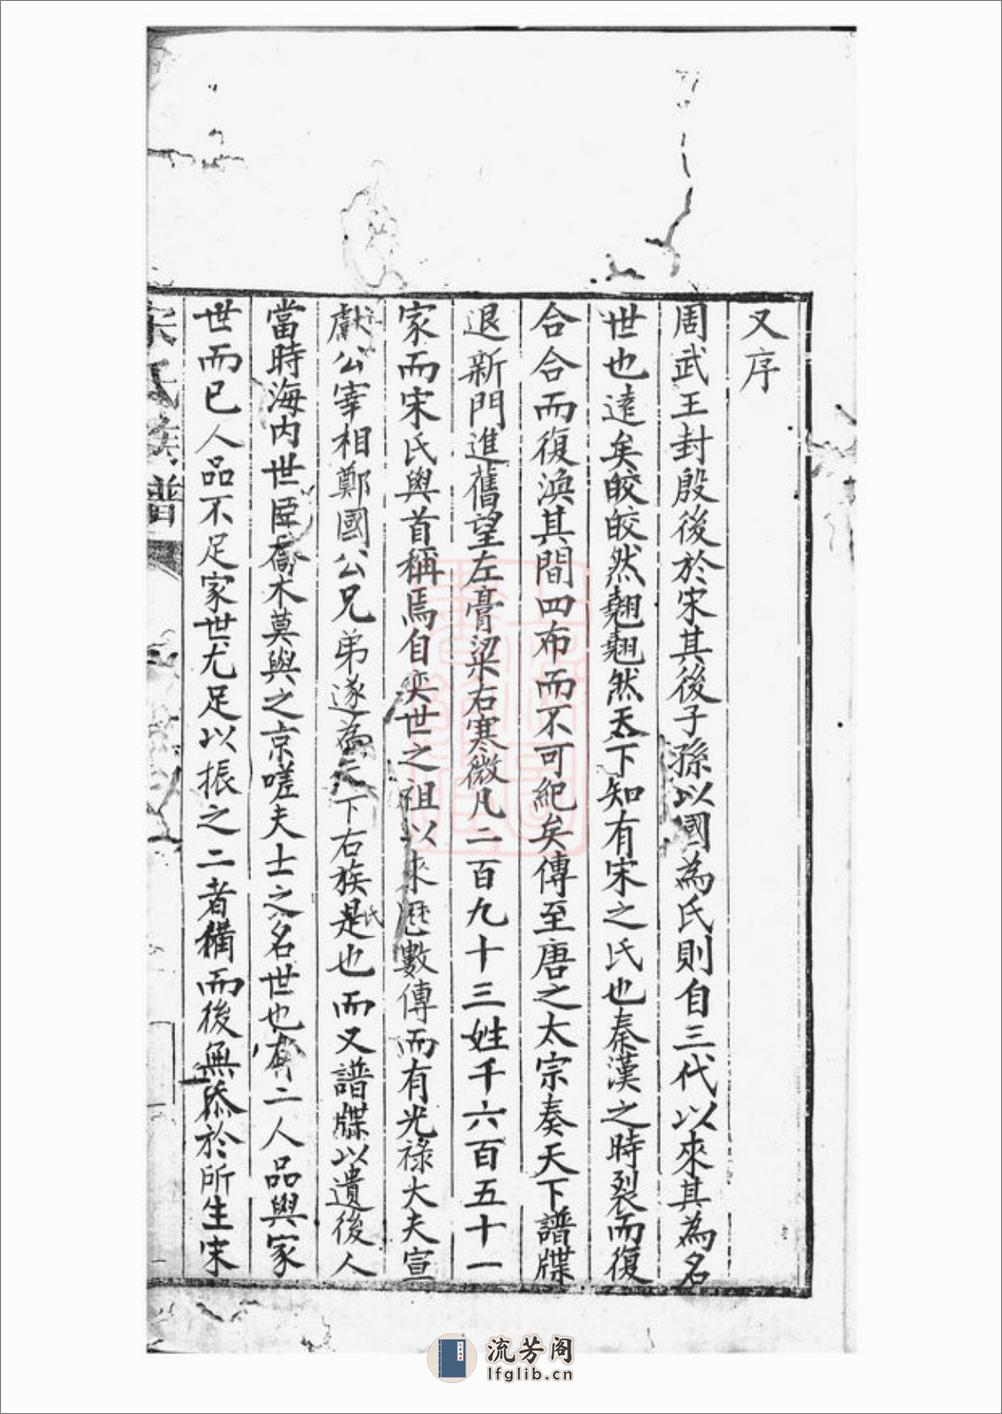 又序
周武王封殷後於宋其後子孫以國為氏則自三代以來其為名
世也遠矣皎皎然翹翹然天下知有宋之氏也秦漢之時裂而復
合合而復渙其間四布而不可紀矣傳至唐之太宗奏天下譜牒
退新門進舊望左膏粱右寒微凡二百九十三姓千六百五十一
家而宋氏與首稱焉自奕世之祖以來歷數傳而有光祿大夫宣
獻公宰相鄭國公兄弟遂為天下右族是也而又譜牒以遺後人
氏
當時海內世臣喬木莫與之京嗟夫士之名世也有二人品與家
世而已人品不足家世尤足以振之二者備而後無忝於所生宋
宋氏族譜
流芳阁
lfglib.cn